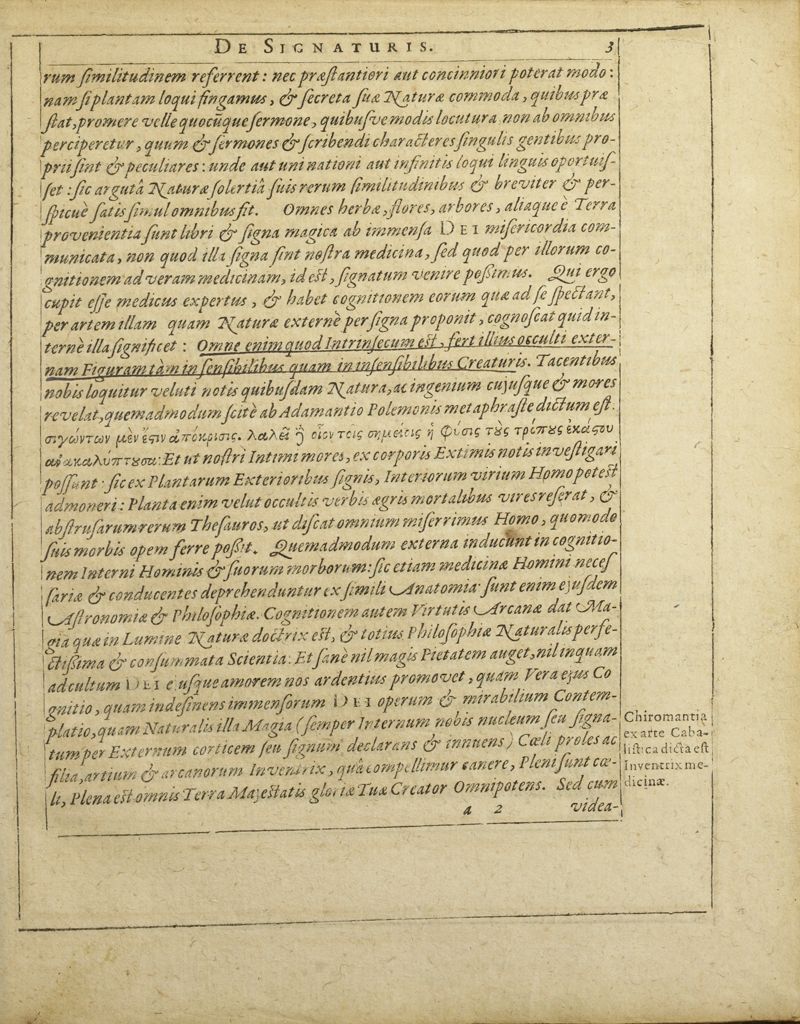 DE SIGNATURIS. 3
rum ſimilitudinem referrent: nec præſtantiori aut concinniori poterat modo:
nam ſi plantam loqui fingamus, & ſecreta ſuæ Naturæ commoda, quibus præ
ſtat, promere velle quocũque ſermone, quibuſve modis locutura non ab omnibus
perciperetur, quum & ſermones & ſcribendi characteres ſingulis gentibus pro-
prii ſint & peculiares: unde aut uni nationi aut infinitis loqui linguis oportuiſ-
ſet: ſic argutâ Naturæ ſolertiâ ſuis rerum ſimilitudinibus & breviter & per-
ſpicuè ſatis ſimul omnibus fit. Omnes herbæ, flores, arbores, aliaque è Terra
provenientia ſunt libri & ſigna magica ab immenſa DEI miſericordia com-
municata, non quod illa ſigna ſint noſtra medicina, ſed quod per illorum co-
gnitionem ad veram medicinam, id eſt, ſignatum venire poßimus. Qui ergo
cupit eſſe medicus expertus, & habet cognitionem eorum quæ ad ſe ſpectant,
per artem illam quam Natura externè per ſigna proponit, cognoſcat quid in-
ternè illa ſignificet: Omne enim quod Intrinſecum eſt, fert illius occulti exter-
nam Figuram tàm in ſenſibilibus quam in inſenſibilibus Creaturis. Tacentibus
nobis loquitur veluti notis quibuſdam Natura, ac ingenium cujuſque & mores
revelat, quemadmodum ſcitè ab Adamantio Polemonis metaphraſte dictum eſt.
σιγώντων μὲν ἔςιν ἀπόκρισις. λαλεῖ ἢ οἷον τοῖς σημείοις ἡ φύσις τὸς τρόπȣς ἑκάςου
ἀνακαλύπτȣσα: Et ut noſtri Intimi mores, ex corporis Extimis notis inveſtigari
poſſunt: ſic ex Plantarum Exterioribus ſignis, Interiorum virium Homo poteſt
admoneri: Planta enim velut occultis verbis ægris mortalibus vires referat, &
abſtruſarum rerum Theſauros, ut diſcat omnium miſerrimus Homo, quomodo
ſuis morbis opem ferre poßit. Quemadmodum externa inducunt in cognitio-
nem Interni Hominis & ſuorum morborum: ſic etiam medicinæ Homini neceſ
ſariæ & conducentes deprehenduntur ex ſimili Anatomia: ſunt enim ejuſdem
Aſtronomiæ & Philoſophiæ. Cognitionem autem Virtutis Arcanæ dat Ma-
gia quæ in Lumine Naturæ doctrix eſt, & totius Philoſophiæ Naturalis perfe-
ctißima & conſummata Scientia: Et ſanè nil magis Pietatem auget, nil inquam
ad cultum DEI ejuſque amorem nos ardentius promovet, quam Vera ejus Co
gnitio, quam indefinens immenſorum DEI operum & mirabilium Contem-
platio, quam Naturalis illa Magia (ſemper Internum nobis nucleum ſeu ſigna-
tum per Externum corticem ſeu ſignum declarans & innuens) Cœli proles ac
filia, artium & arcanorum Inventrix, quâ compellimur canere, Pleni ſunt cœ-
li, Plena eſt omnis Terra Majeſtatis gloriæ Tuæ Creator Omnipotens. Sed cum
a 2 videa-
Chiromantia
ex arte Caba-
liſtica dicta eſt
Inventrix me-
dicinæ.